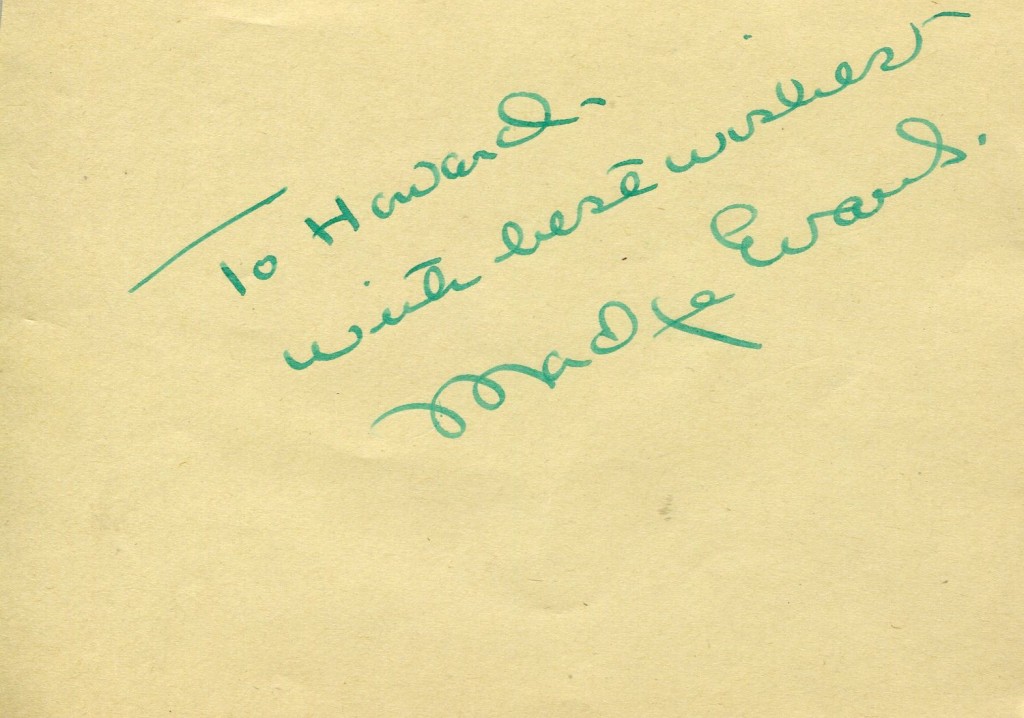 To Howard -
with best wishes
Madge Evans.